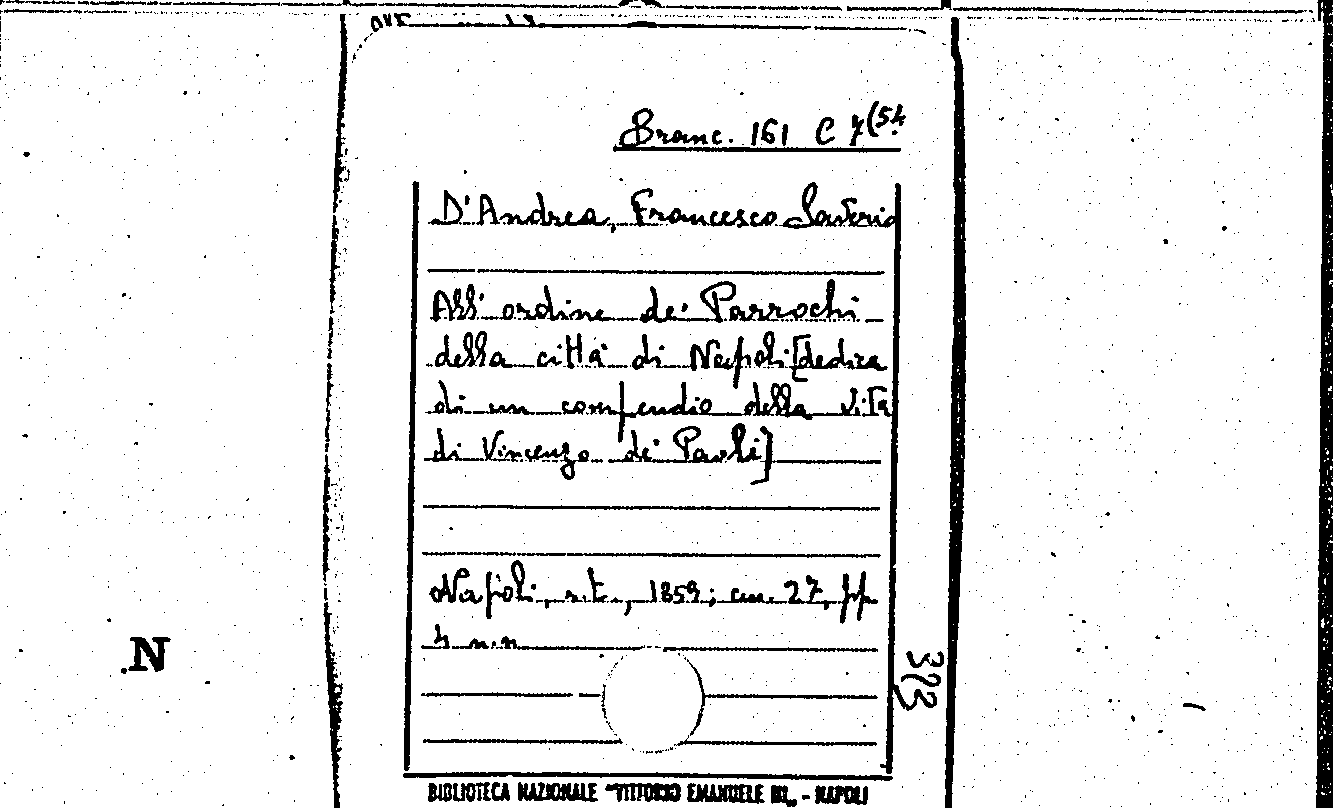 Branc. 161 C 7(54
D'Andrea, Francesco Saverio
All'ordine de' Parrochi
della città di Napoli [dedica
di un compendio della vita
di Vincenzo de' Paoli]
Napoli, s.t., 1859; cm. 27, pp.
4 n.n.
N
323
BIBLIOTECA NAZIONALE "VITTORIO EMANUELE III„ - NAPOLI